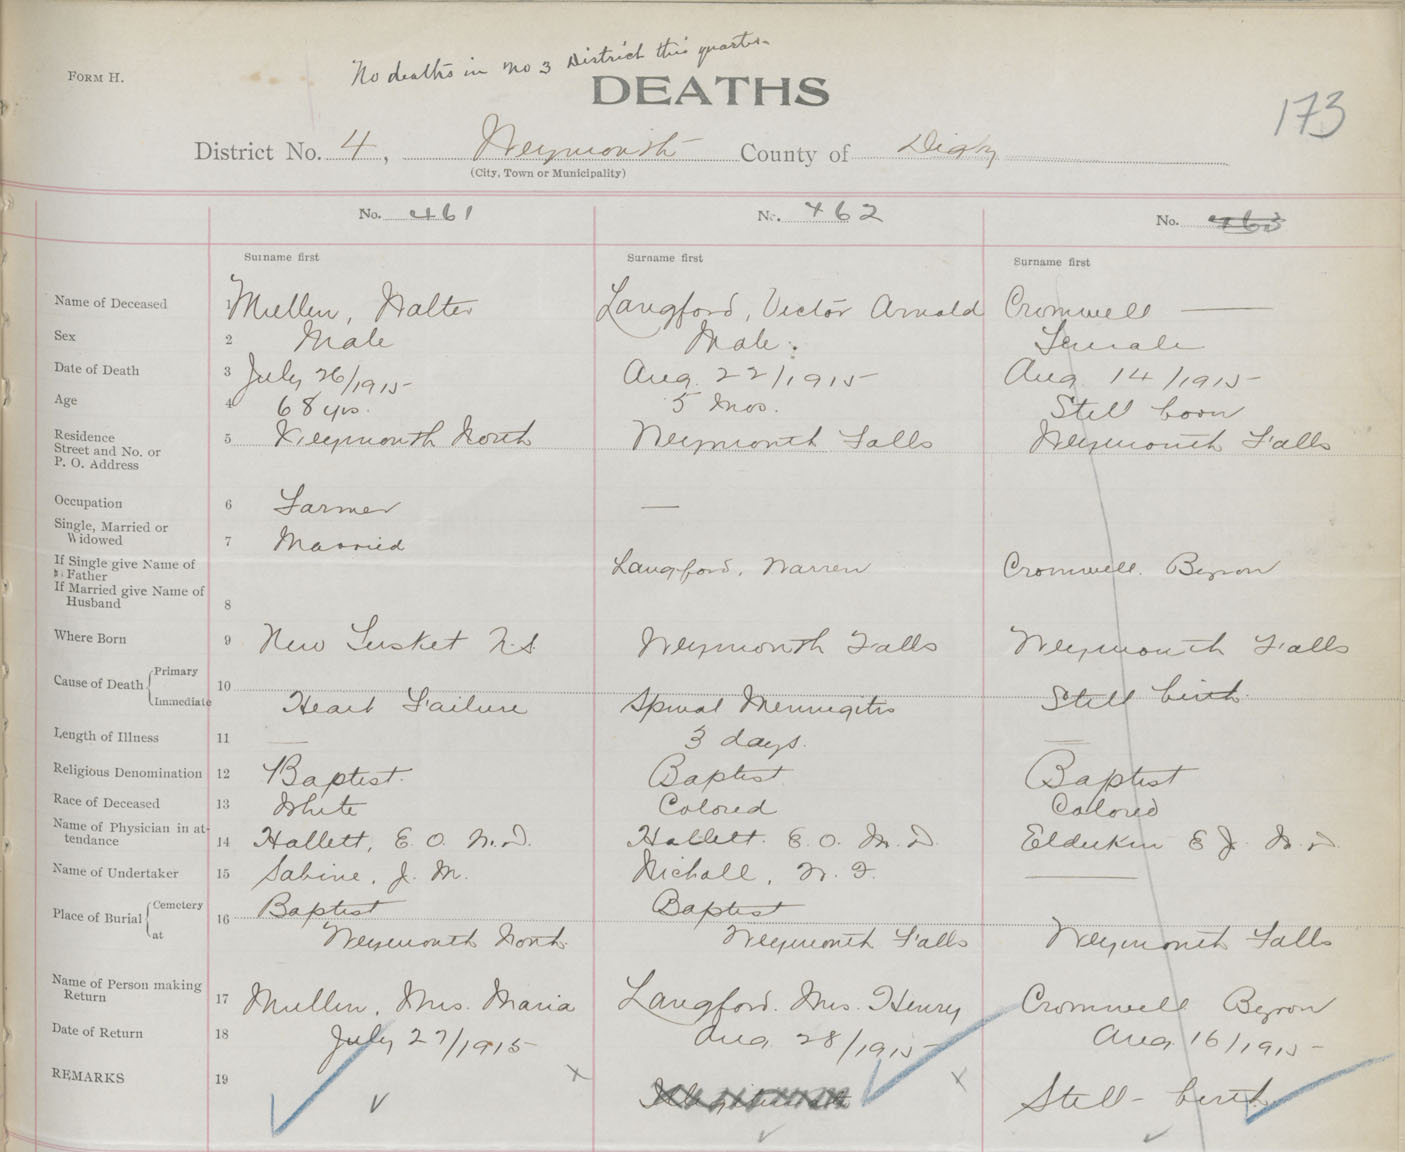 No deaths in No 3 District this quarter
FORM H.
DEATHS
173
District No. 4, Weymouth County of Digby
(City, Town or Municipality)
No. 461 No. 462 No. 463
Surname first Surname first Surname first
Name of Deceased 1 Mullen, Walter Langford, Victor Arnold Cromwell —
Sex 2 Male Male. Female
Date of Death 3 July 26/1915 Aug. 22/1915 Aug 14/1915
Age 4 68 yrs. 5 Mos. Still born
Residence
Street and No. or
P. O. Address 5 Weymouth North Weymouth Falls Weymouth Falls
Occupation 6 Farmer —
Single, Married or
Widowed 7 Married
If Single give Name of
Father Langford, Warren Cromwell. Byron
If Married give Name of
Husband 8
Where Born 9 New Tusket N.S. Weymouth Falls Weymouth Falls
Cause of Death { Primary
Immediate 10 Heart Failure Spinal Meningitis Still birth
Length of Illness 11 — 3 days. —
Religious Denomination 12 Baptist. Baptist Baptist
Race of Deceased 13 White Colored Colored
Name of Physician in at-
tendance 14 Hallett, E. O. M.D. Hallett. E. O. M.D. Elderkin E J. M.D.
Name of Undertaker 15 Sabine, J. M. Nichall, —
Place of Burial { Cemetery 16 Baptist Baptist
at Weymouth North. Weymouth Falls Weymouth Falls
Name of Person making
Return 17 Mullen, Mrs. Maria Langford. Mrs. Henry Cromwell Byron
Date of Return 18 July 27/1915 Aug. 28/1915 Aug 16/1915
REMARKS 19 x x Still-birth